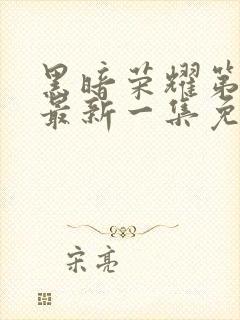 黑暗荣耀第
最新一集免
宋亮